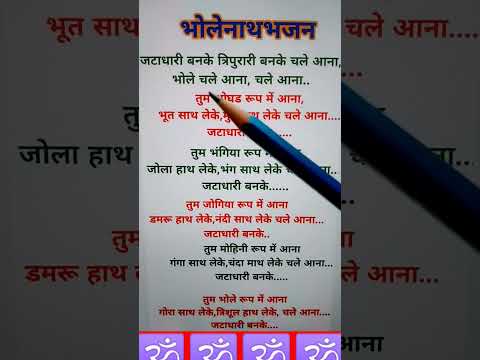 भोलेनाथभजन
जटाधारी बनके त्रिपुरारी बनके चले आना,
भोले चले आना, चले आना..
तुम रूप में आना,
भूत साथ लेके, लेके चले आना....
जटाधारी
तुम भंगिया रूप में
जोला हाथ लेके,भंग साथ लेके चले आना...
जटाधारी बनके......
तुम जोगिया रूप में आना
डमरू हाथ लेके,नंदी साथ लेके चले आना...
जटाधारी बनके..
तुम मोहिनी रूप में आना
गंगा साथ लेके,चंदा माथ लेके चले आना...
जटाधारी बनके.....
तुम भोले रूप में आना
गोरा साथ लेके,त्रिशूल हाथ लेके, चले आना....
जटाधारी बनके....
ॐ ॐ ॐ ॐ